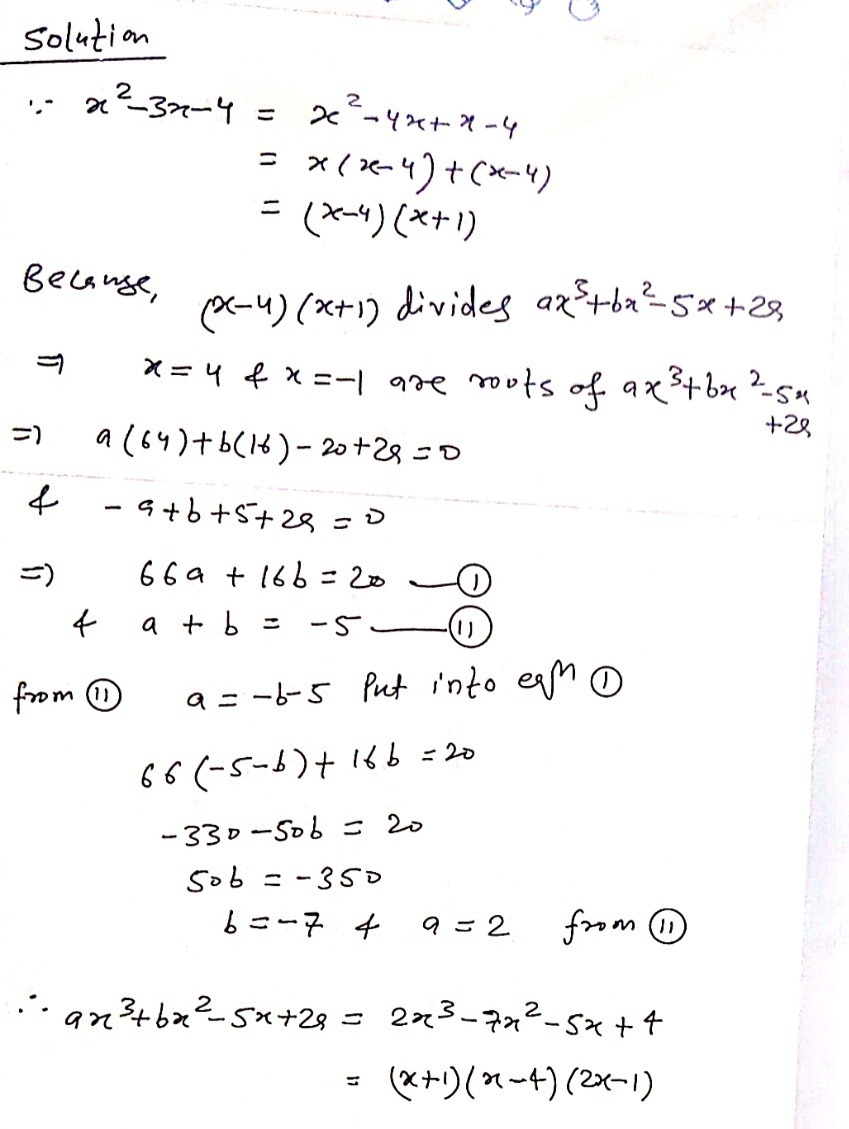 Solution
∵ x²-3x-4 = x²-4x+x-4
= x(x-4)+(x-4)
= (x-4)(x+1)
Because, (x-4)(x+1) divides ax³+bx²-5x+2a
⇒ x=4 & x=-1 are roots of ax³+bx²-5x
+2a
⇒ a(64)+b(16)-20+2a=0
& -a+b+5+2a=0
⇒ 66a+16b=20 — (I)
& a+b=-5 — (II)
from (II) a=-b-5 Put into eqn (I)
66(-5-b)+16b=20
-330-50b=20
50b=-350
b=-7 & a=2 from (II)
∴ ax³+bx²-5x+2a = 2x³-7x²-5x+4
= (x+1)(x-4)(2x-1)